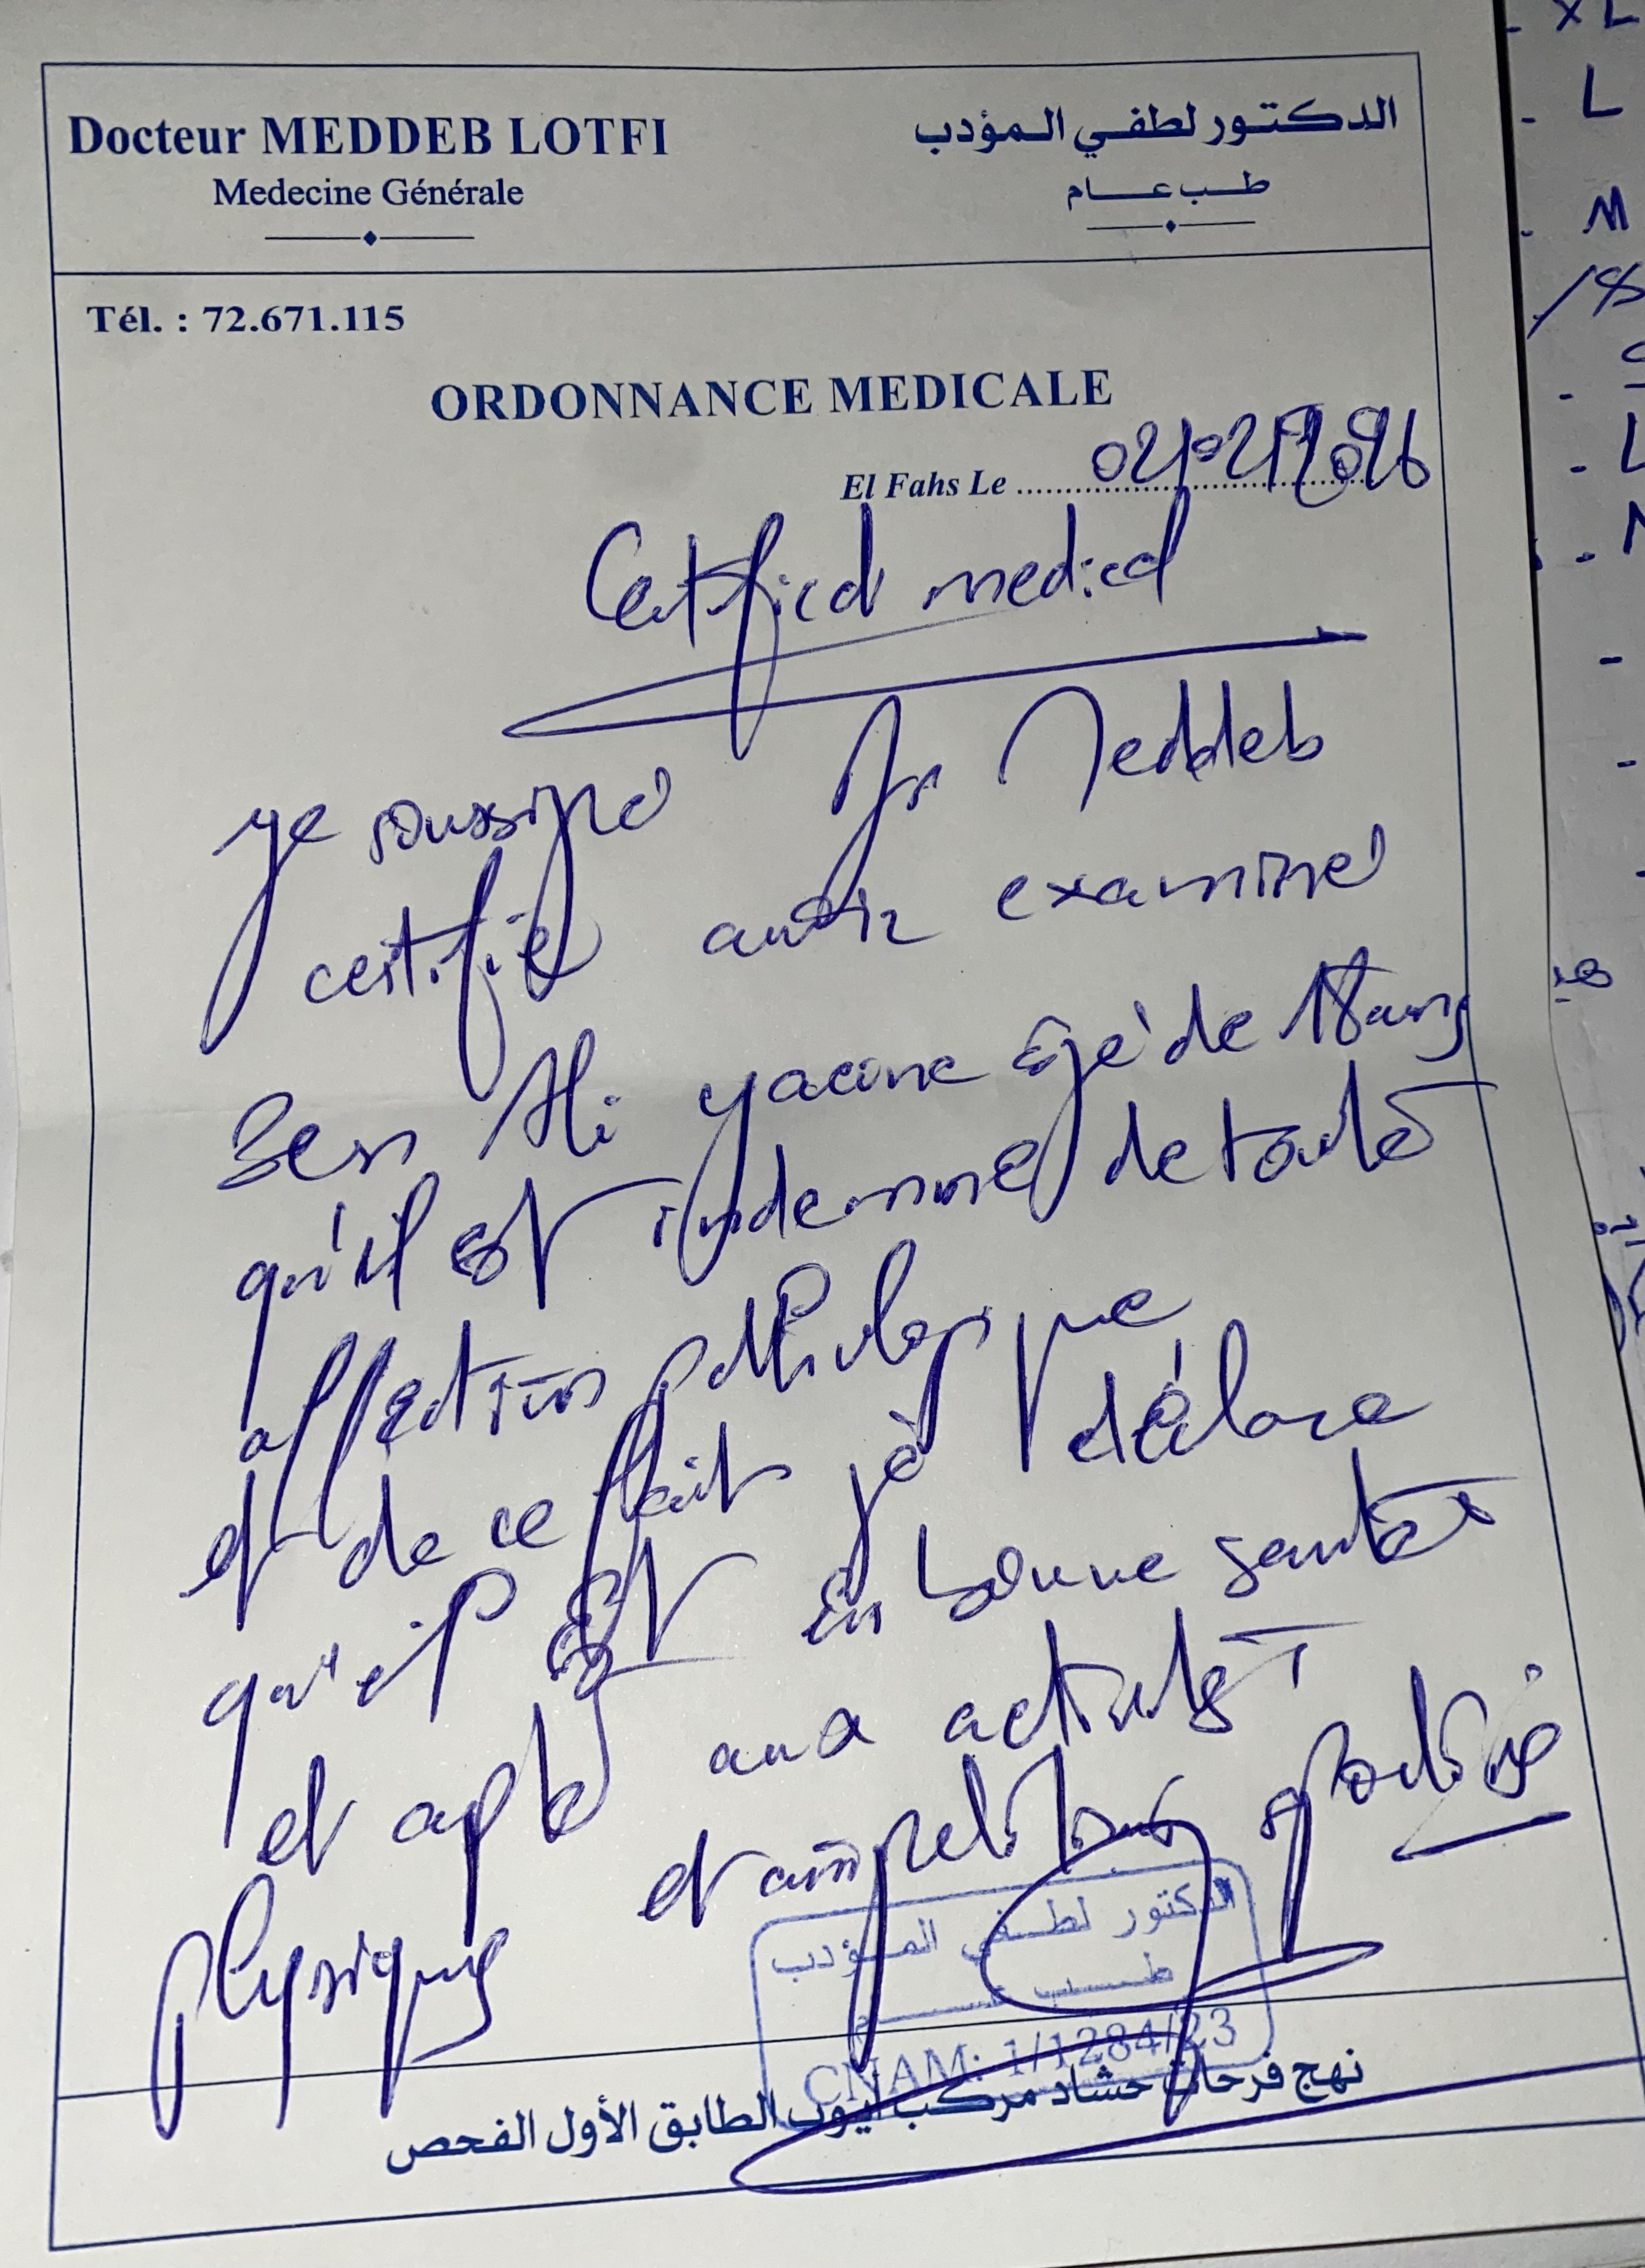 Docteur MEDDEB LOTFI
Medecine Générale
الدكتور لطفي المؤدب
طب عام
Tél. : 72.671.115
ORDONNANCE MEDICALE
El Fahs Le
Certificat medical
Je soussigné Dr Meddeb
certifie avoir examiné
Ben Ali yacine âgé de 18 ans
qu'il est indemne de toute
affection pathologique
et de ce fait je déclare
qu'il est en bonne santé
et apte aux activités
physiques et compétitions sportives
الدكتور لطفي المؤدب
طب عام
CNAM: 1/1284/23
نهج فرحات حشاد مركب الطابق الأول الفحص
XL
L
M